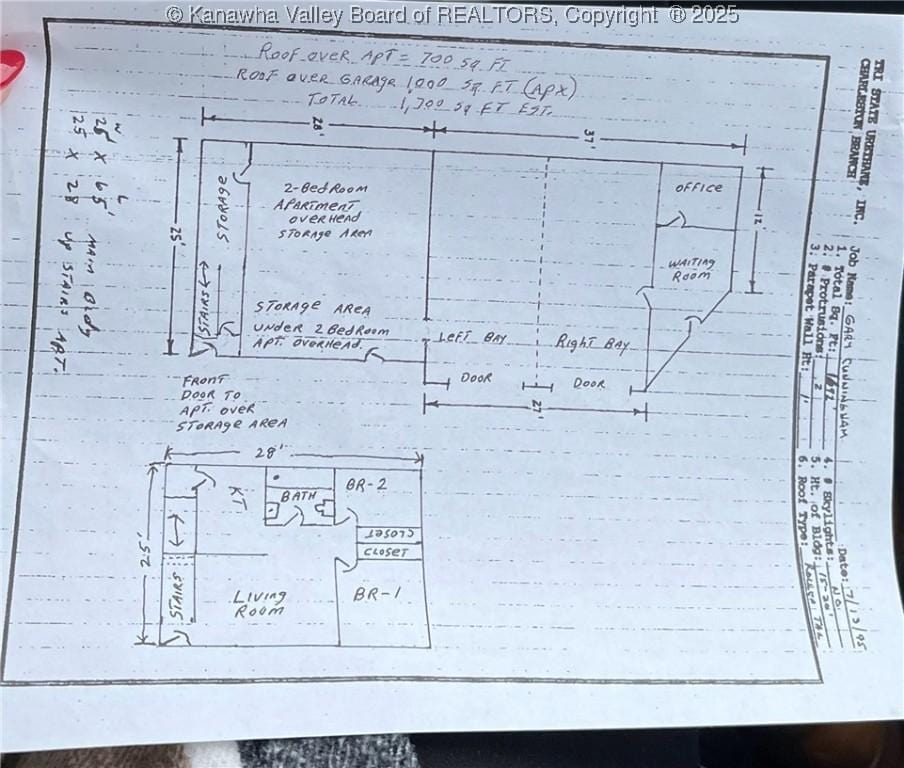 © Kanawha Valley Board of REALTORS, Copyright ® 2025
Roof over Apt = 700 sq FT
Roof over GARAGE 1,000 sq FT (Apx)
TOTAL 1,700 sq FT EST.
28'
37'
25'
12'
27'
STORAGE
STAIRS
2-BedRoom
APARTMENT
overHead
STORAGE AREA
STORAGE AREA
UNDER 2 BedRoom
APT. OVERHEAD.
LEFT BAY
RIGHT BAY
DOOR
DOOR
OFFICE
WAITING
ROOM
FRONT
DOOR TO
APT. over
STORAGE AREA
28'
25'
KT
BATH
BR-2
CLOSET
CLOSET
BR-1
LIVING
ROOM
STAIRS
W L
25' X 65' MAIN Bldg
25 X 28 UP STAIRS APT.
TRI STATE URETHANE, INC.
CHARLESTON BRANCH
Job Name: GARY CUNNINGHAM
Date: 7/13/95
1. Total Sq. Ft:
4. # Skylights: NO
2. # Protrusions: 2
5. Ht. of Bldg:
3. Parapet Wall Ht: 1'
6. Roof Type: